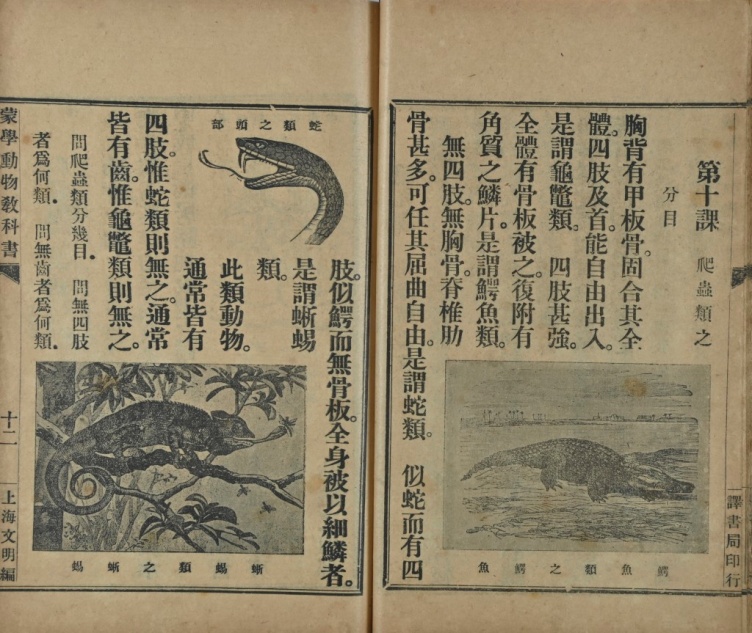 譯書局印行
第十課 爬蟲類之
分目
胸背有甲板骨固合其全
體。四肢及首。能自由出入。
是謂龜鼈類。 四肢甚強。
全體有骨板被之。復附有
角質之鱗片。是謂鰐魚類。
無四肢。無胸骨。脊椎肋
骨甚多。可任其屈曲自由。是謂蛇類。 似蛇而有四
鰐魚類之鰐魚
肢。似鰐而無骨板。全身被以細鱗者。
是謂蜥蜴
類。
此類動物。
通常皆有
四肢。惟蛇類則無之。通常
皆有齒。惟龜鼈類則無之。
蛇類之頭部
蜥蜴類之蜥蜴
問爬蟲類分幾目。 問無四肢
者爲何類。 問無齒者爲何類。
蒙學動物教科書 十二 上海文明編